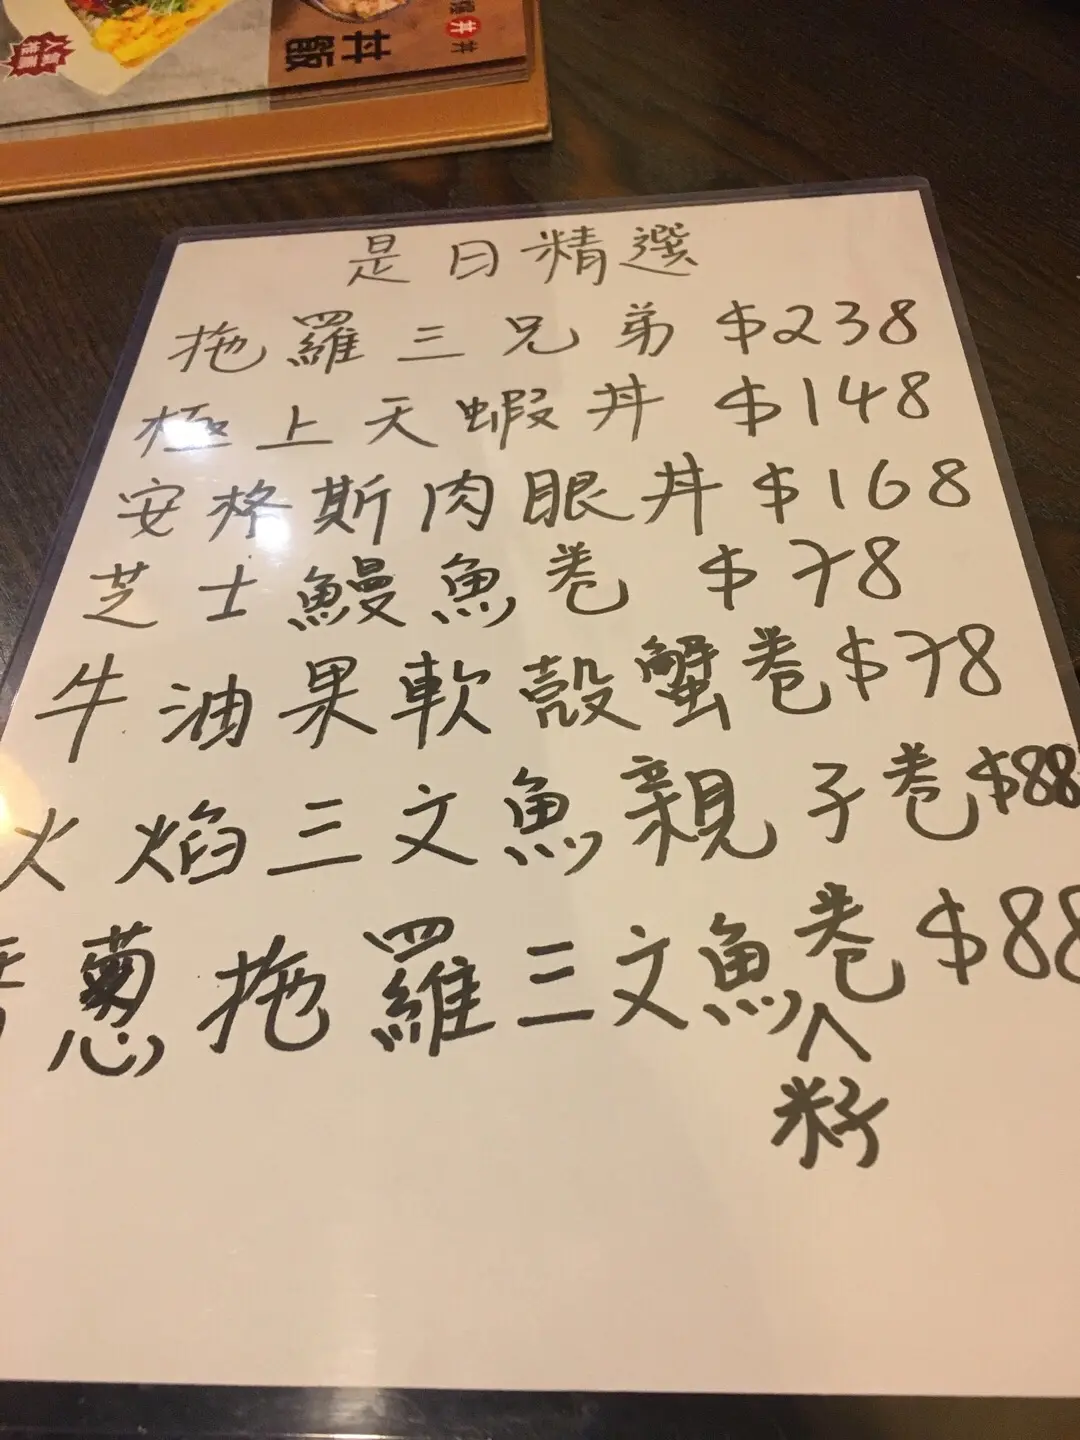 丼飯
人氣推薦
是日精選
拖羅三兄弟 $238
極上天蝦丼 $148
安格斯肉眼丼 $168
芝士鰻魚卷 $78
牛油果軟殼蟹卷 $78
火焰三文魚親子卷 $88
蔥拖羅三文魚卷 $88
八籽